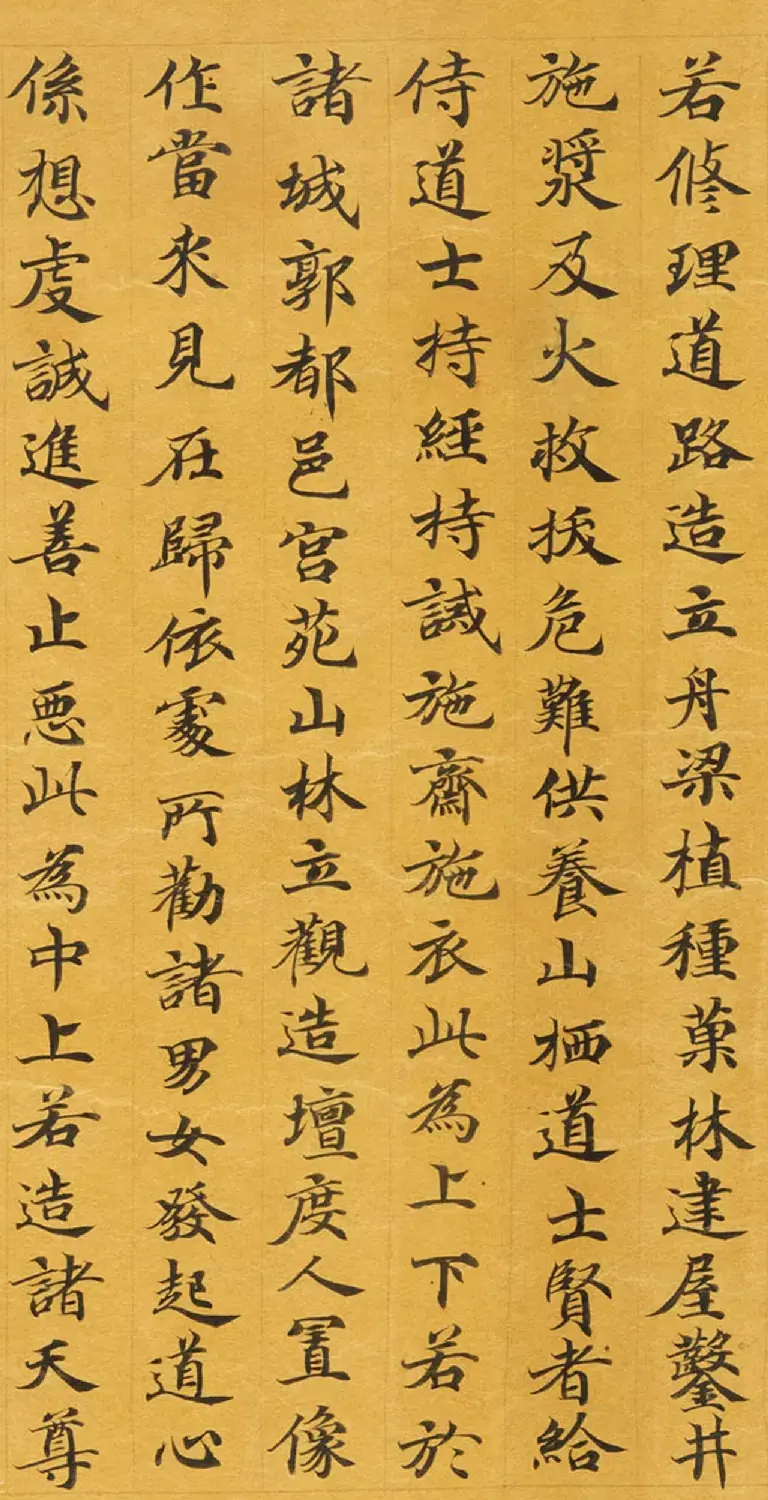 若修理道路造立舟梁植種菓林建屋鑿井
施漿及火救拔危難供養山栖道士賢者給
侍道士持經持誡施齋施衣此為上下若於
諸城郭都邑宮苑山林立觀造壇度人置像
作當來見在歸依處所勸諸男女發起道心
係想虔誠進善止惡此為中上若造諸天尊